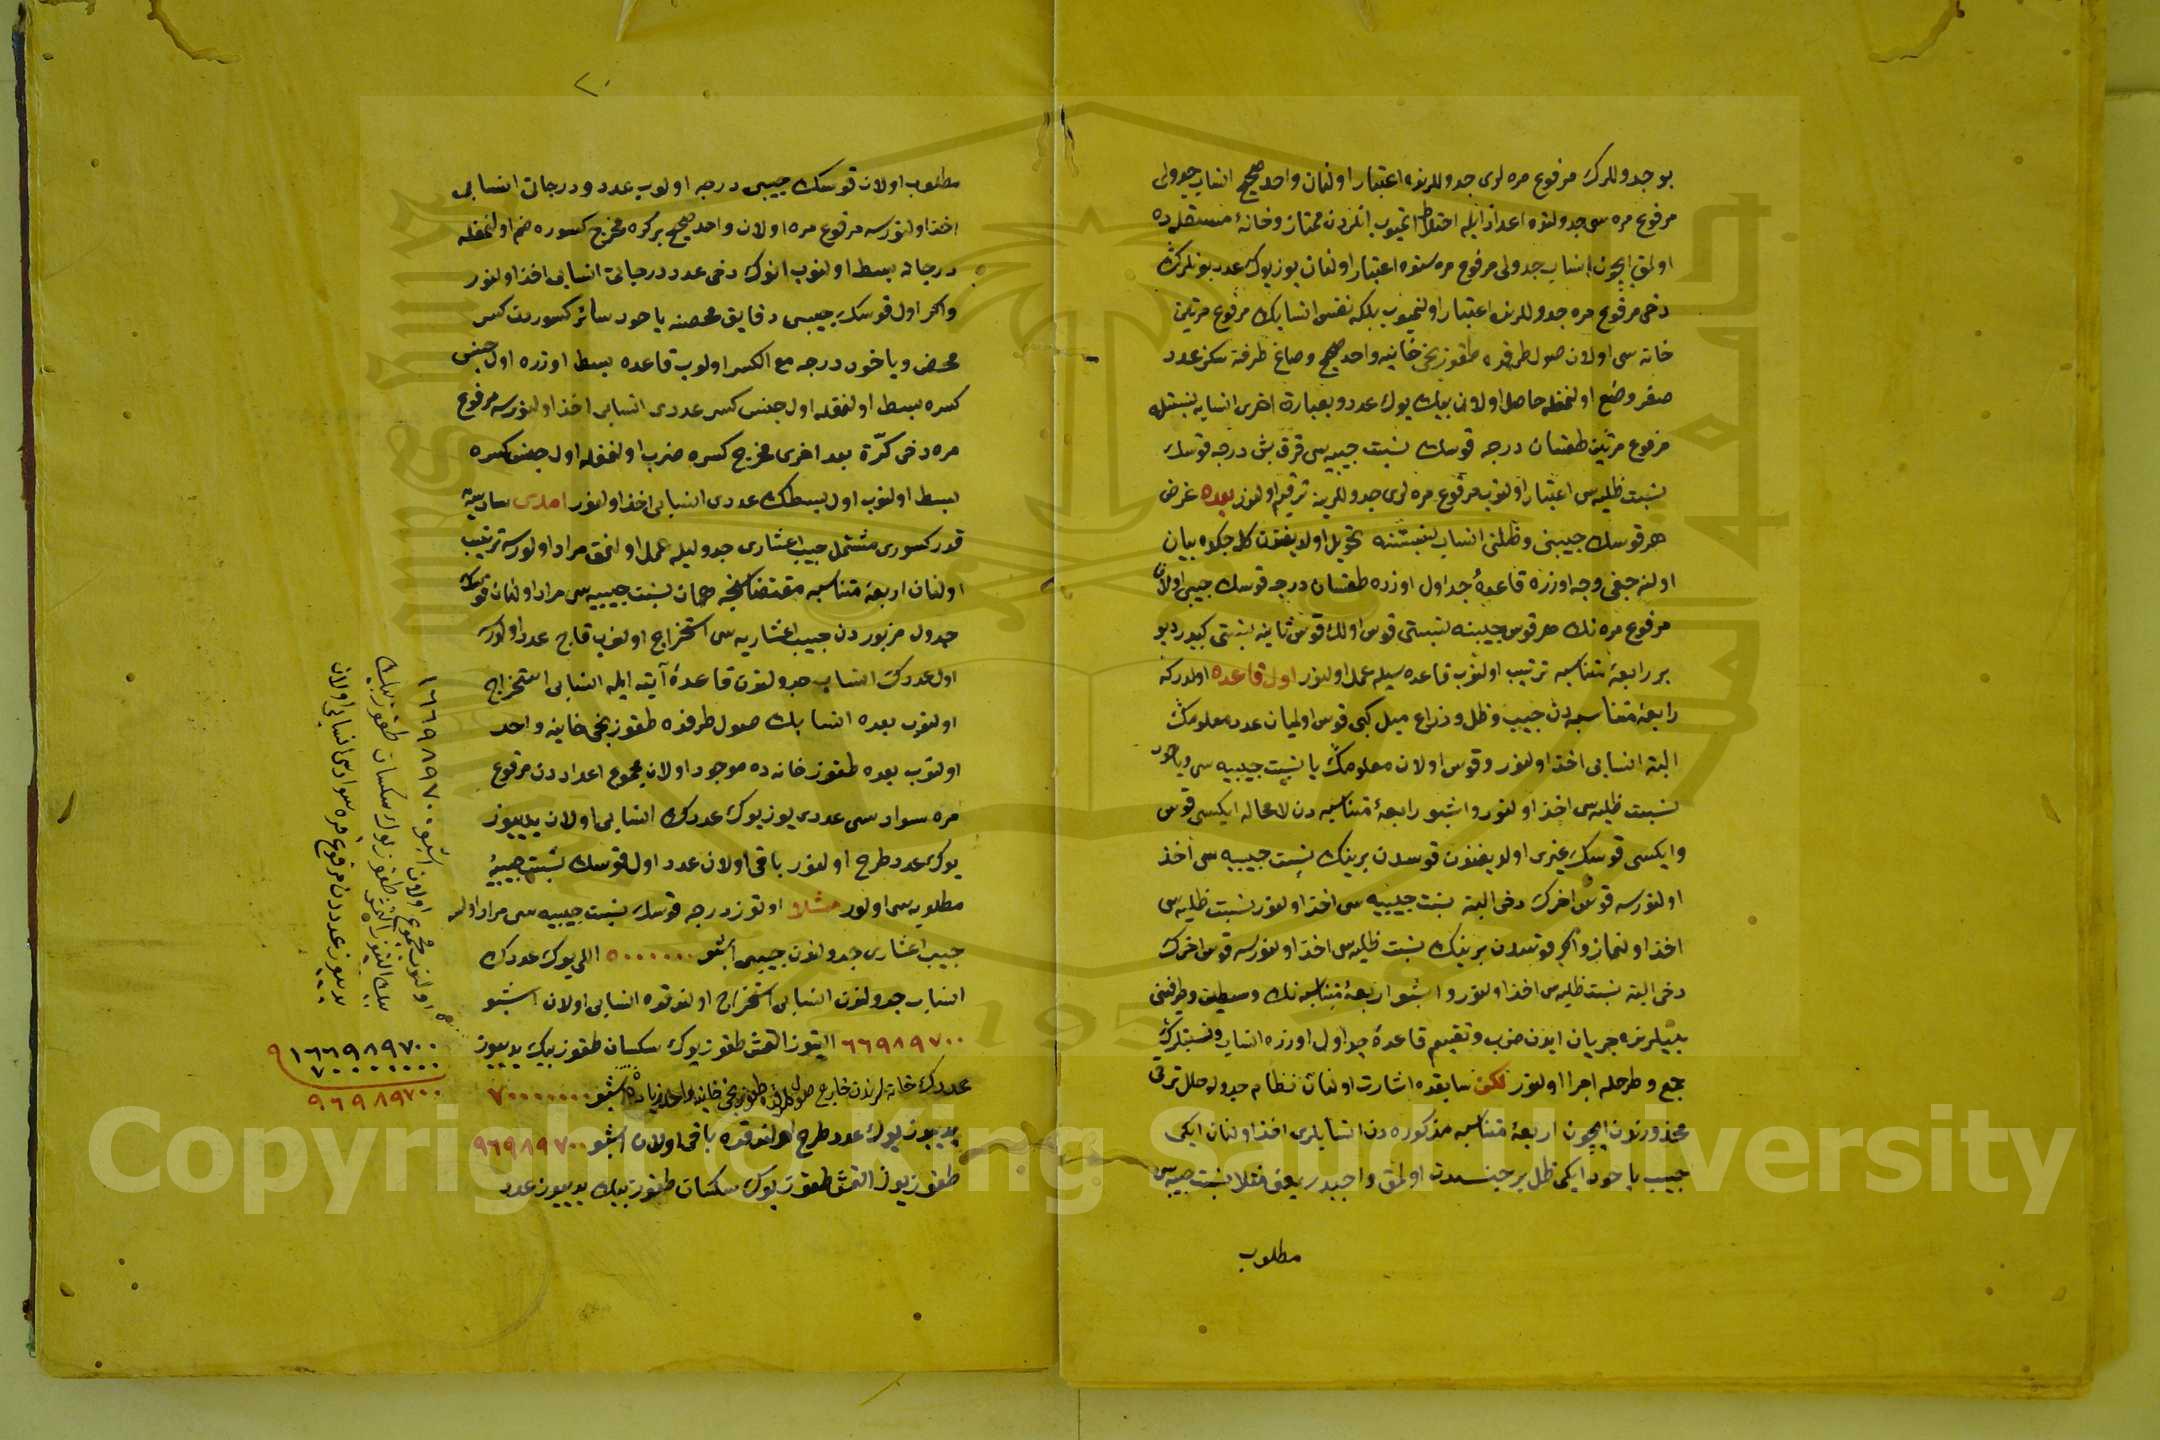 بو جدوللرك مرفوع مره لری جدوللرنده اعتبار اولنان واحد صحیح انساب جدولی
مرفوع مره سی جدولنده اعداد ایله اختلاط ایتمیوب انلردن ممتاز و خانهٔ مستقله ده
اولمق ایچون انساب جدولی مرفوع مره سنده اعتبار اولنان یوز یوك عدد بونلرك
دخی مرفوع مره جدوللرنده اعتبار اولنمیوب بلكه نفس انسابك مرفوع مرتین
خانه سی اولان صول طرفنه طقوزنجی خانیه واحد صحیح و صاغ طرفنه سكز عدد
صفر وضع اولنمغله حاصل اولان بیك یوك عدد و بعبارة اخری انسابه نسبتله
مرفوع مرتین طقسان درجه قوسك نسبت جیبیه سی قرق بش درجه قوسك
نسبت ظلیه سی اعتبار اولنوب مرفوع مره لری جدوللرینه ترقیم اولنور بعده غرض
هر قوسك جیبنی و ظلنی انساب نسبتنه تحویل اولدیغندن كله جكده بیان
اولنه جغی وجه اوزره قاعدهٔ جداول اوزره طقسان درجه قوسك جیبی اولان
مرفوع مره نك هر قوس جیبنه نسبتی قوس اولك قوس ثانیه نسبتی كبیدر دیو
بر رابعهٔ متناسبه ترتیب اولنوب قاعده سیله عمل اولنور اول قاعده اولدركه
رابعهٔ متناسبه دن جیب و ظل و ذراع میل كبی قوس اولمیان عدد معلومك
البته انسابی اخذ اولنور و قوس اولان معلومك یا نسبت جیبیه سی ویاخود
نسبت ظلیه سی اخذ اولنور و اشبو رابعهٔ متناسبه دن لامحاله ایكیسی قوس
و ایكیسی قوسك غیری اولدیغندن قوسدن برینك نسبت جیبیه سی اخذ
اولنورسه قوس اخرك دخی البته نسبت جیبیه سی اخذ اولنور نسبت ظلیه سی
اخذ اولنماز و اكر قوسدن برینك نسبت ظلیه سی اخذ اولنورسه قوس اخرك
دخی البته نسبت ظلیه سی اخذ اولنور و اشبو اربعهٔ متناسبه نك وسطین و طرفینی
بینلرنده جریان ایدن ضرب و تقسیم قاعدهٔ جداول اوزره انساب و نسبتلرك
جمع و طرحله اجرا اولنور لكن سابقده اشارت اولنان نظام جدوله خلل ترقی
محذورندن ایچون اربعهٔ متناسبه مذكوره دن انسابلری اخذ اولنان ایكی
جیب یاخود ایكی ظل بر جنسدن اولمق واجبدر یعنی مثلا نسبت جیبیه سی
مطلوب
٢٠
مطلوب اولان قوسك جیبی درجه اولوب عدد درجاتی انسابی
اخذ اولنورسه مرفوع مره اولان واحد صحیح بر كره مخرج كسوره ضم اولنمغله
درجاته بسط اولنوب انوك دخی عدد درجاتی انسابی اخذ اولنور
واكر اول قوسك جیبی دقایق محضه یاخود سائر كسوردن كسر
محض ویاخود درجه مع الكسر اولوب قاعده بسط اوزره اول جنس
كسره بسط اولنمغله اول جنس كسر عددی انسابی اخذ اولنورسه مرفوع
مره دخی كرّة بعد اخری مخرج كسره ضرب اولنمغله اول جنس كسره
بسط اولنوب اول بسطك عددی انسابی اخذ اولنور امدی سادسیه
قدر كسوری مشتمل جیب اعشاری جدولیله عمل اولنمق مراد اولنورسه ترتیب
اولنان اربعهٔ متناسبه مقتضاسنجه همان نسبت جیبیه سی مراد اولنان قوسك
جدول مزبوردن جیب اعشاریه سی استخراج اولنوب قاج عدد اولورسه
اول عددك انساب جدولندن قاعدهٔ آتیه ایله انسابی استخراج
اولنوب بعده انسابك صول طرفنده طقوزنجی خانیه واحد
اولنوب بعده طقوز خانه ده موجود اولان مجموع اعداددن مرفوع
مره سوادسی عددی یوز یوك عددك انسابی اولان یدییوز
یوك عدد طرح اولنور باقی اولان عدد اول قوسك نسبت جیبیهٔ
مطلوبه سی اولور مثلا اوتوز درجه قوسك نسبت جیبیه سی مراد اولسه
جیب اعشاری جدولندن جیبی اشبو ٥٠٠٠٠٠٠ اللی یوك عددك
انساب جدولندن انسابی استخراج اولندقده انسابی اولان اشبو
٦٦٩٨٩٧٠٠ التیوز التمش طقوز یوك سكسان طقوز بیك یدییوز
عددك خانه لرندن خارج صول طرفنده طقوزنجی خانیه واحد زیاده اشبو ٧٠٠٠٠٠٠٠
یدییوز یوك عدد طرح اولندقده باقی اولان اشبو ٩٦٩٨٩٧٠٠
طقوزیوز التمش طقوز یوك سكسان طقوز بیك یدییوز عدد
اولنوب مجموع اولان اشبو ١٦٦٩٨٩٧٠٠
بیك التیوز التمش طقوز یوك سكسان طقوز بیك
یدییوز عددن مرفوع مره سوادسی انسابی اولان
١٦٦٩٨٩٧٠٠
٧٠٠٠٠٠٠٠
٩٦٩٨٩٧٠٠
Copyright © King Saud University
1957